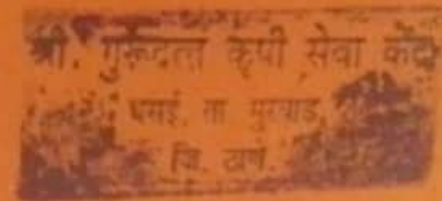 श्री. गुरूदत्त कृषी सेवा केंद्र
धसई, ता मुरबाड,
जि. ठाणे.